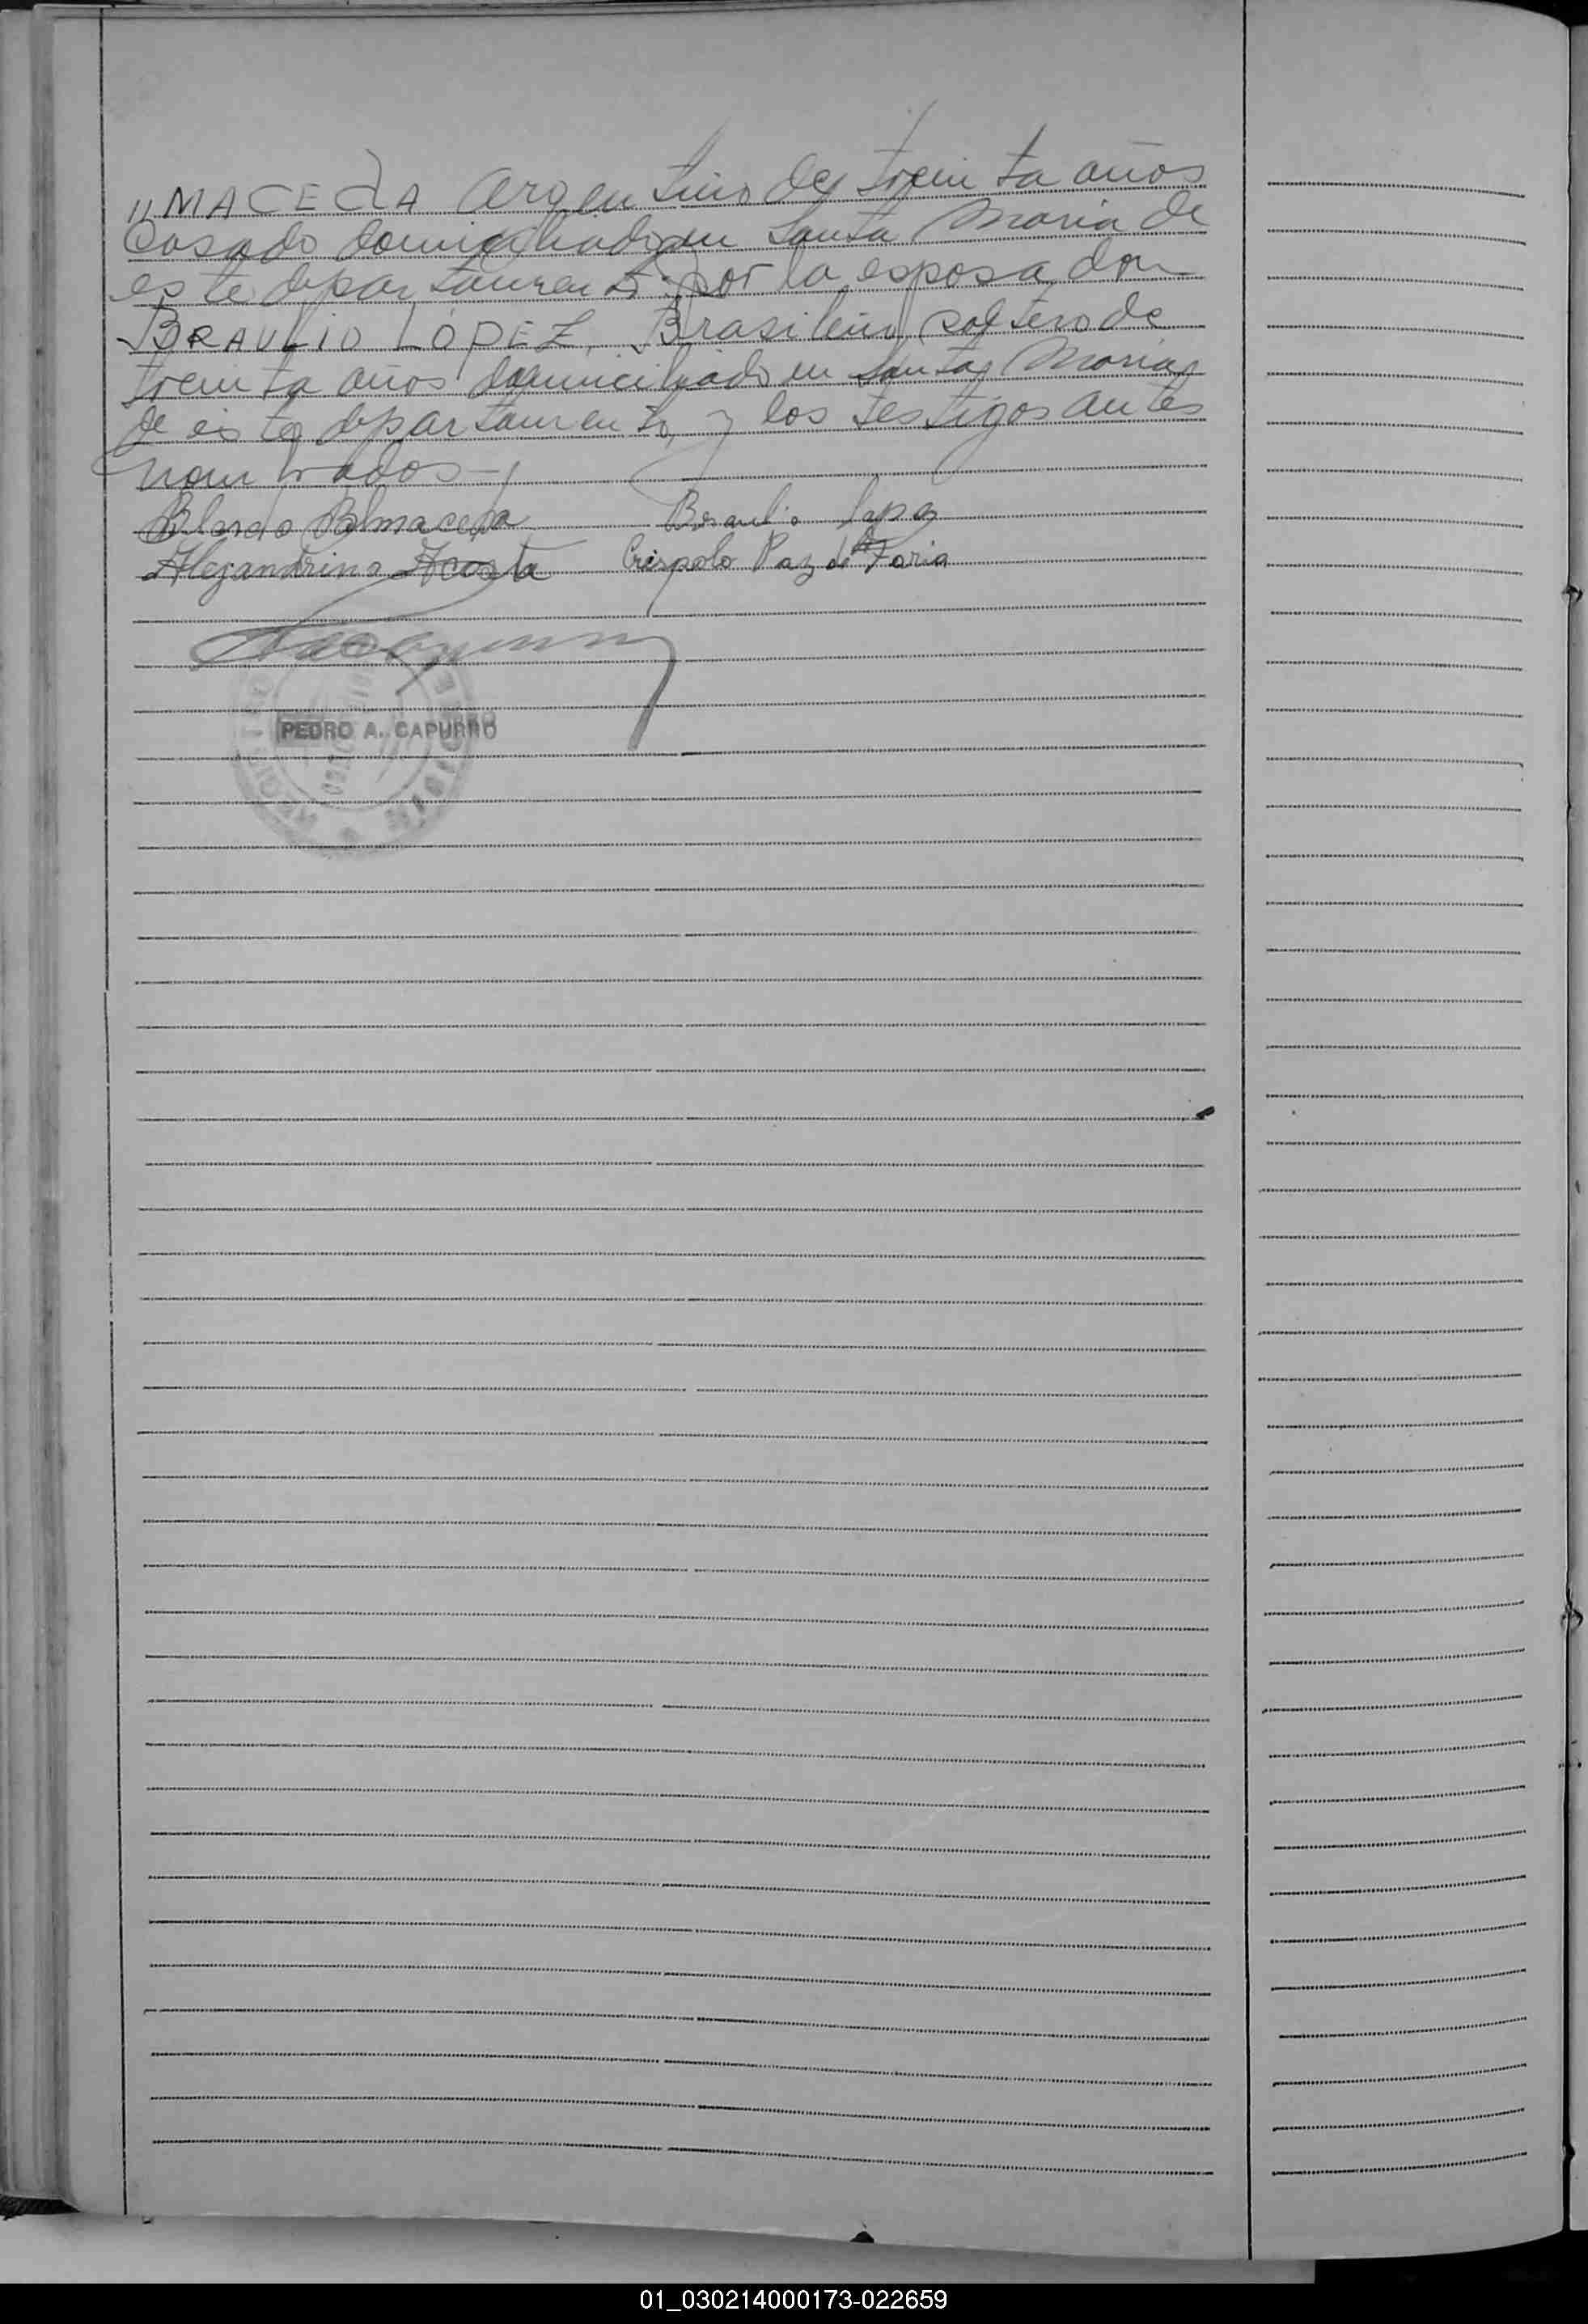 "MACEDA Argentino de treinta años
Casado domiciliado en Santa Maria de
este departamento: por la esposa don
BRAULIO LOPEZ, Brasileño soltero de
treinta años domiciliado en Santa Maria
de este departamento, y los testigos antes
nombrados
Balmaceda Braulio Lopez
Alejandrino Acosta Crispolo Paz de Faria
PEDRO A. CAPURRO
01_030214000173-022659